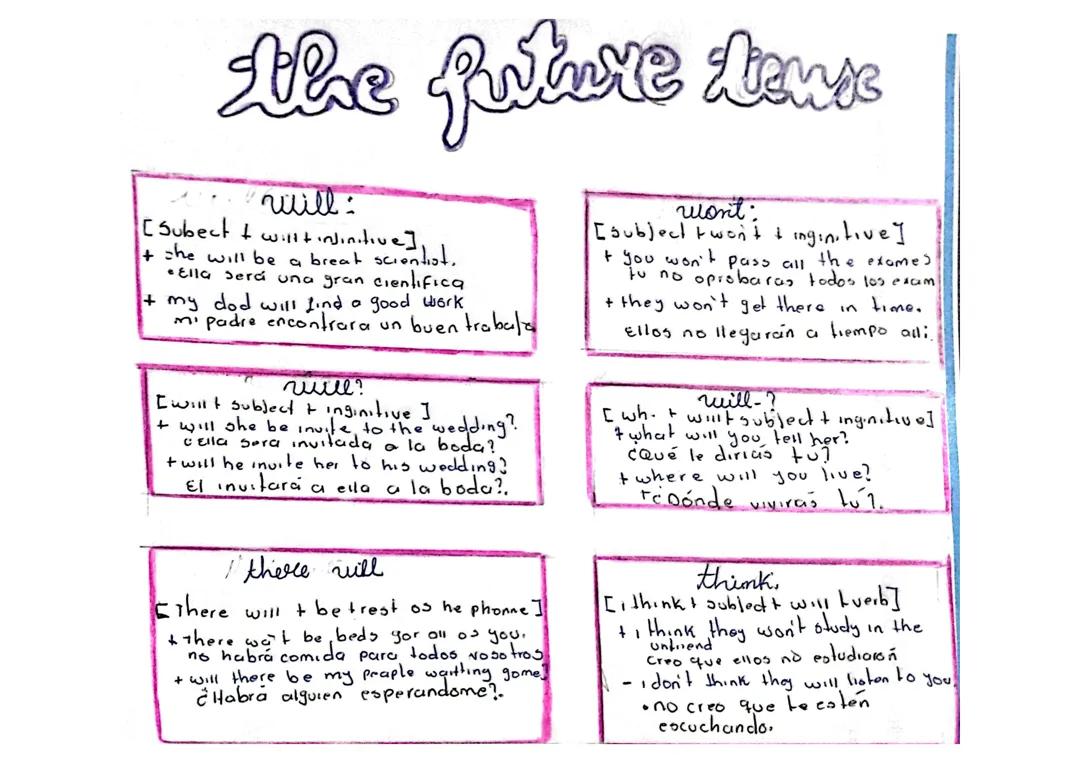 the future tense
will:
[Subect + will + infinitive]
+ she will be a breat scientist.
• Ella será una gran cientifica
+ my dad will find a good work
mi padre encontrara un buen trabajo
won't:
[subject + won't + inginitive]
+ you won't pass all the exames
tu no aprobaras todos los exam
+ they won't get there in time.
Ellos no llegarán a tiempo alli.
will?
[will + subject + inginitive]
+ will she be invite to the wedding?
¿ella sera invitada a la boda?
+ will he invite her to his wedding?
El invitará a ella a la boda?.
will-?
[wh. + will + subject + inginitive]
+ what will you tell her?
¿Qué le dirias tu?
+ where will you live?
¿Dónde vivirás tú?.
there will
[There will + be + rest os he phonne]
+ there wa't be beds gor all os you.
no habrá comida para todos vosotros
+ will there be my praple waitting gome?
¿Habrá alguien esperandome?.
think.
[i think + subject + will + verb]
+ i think they won't study in the
creo que ellos no estudiarán
- i don't think they will listen to you
• no creo que te estén
escuchando.